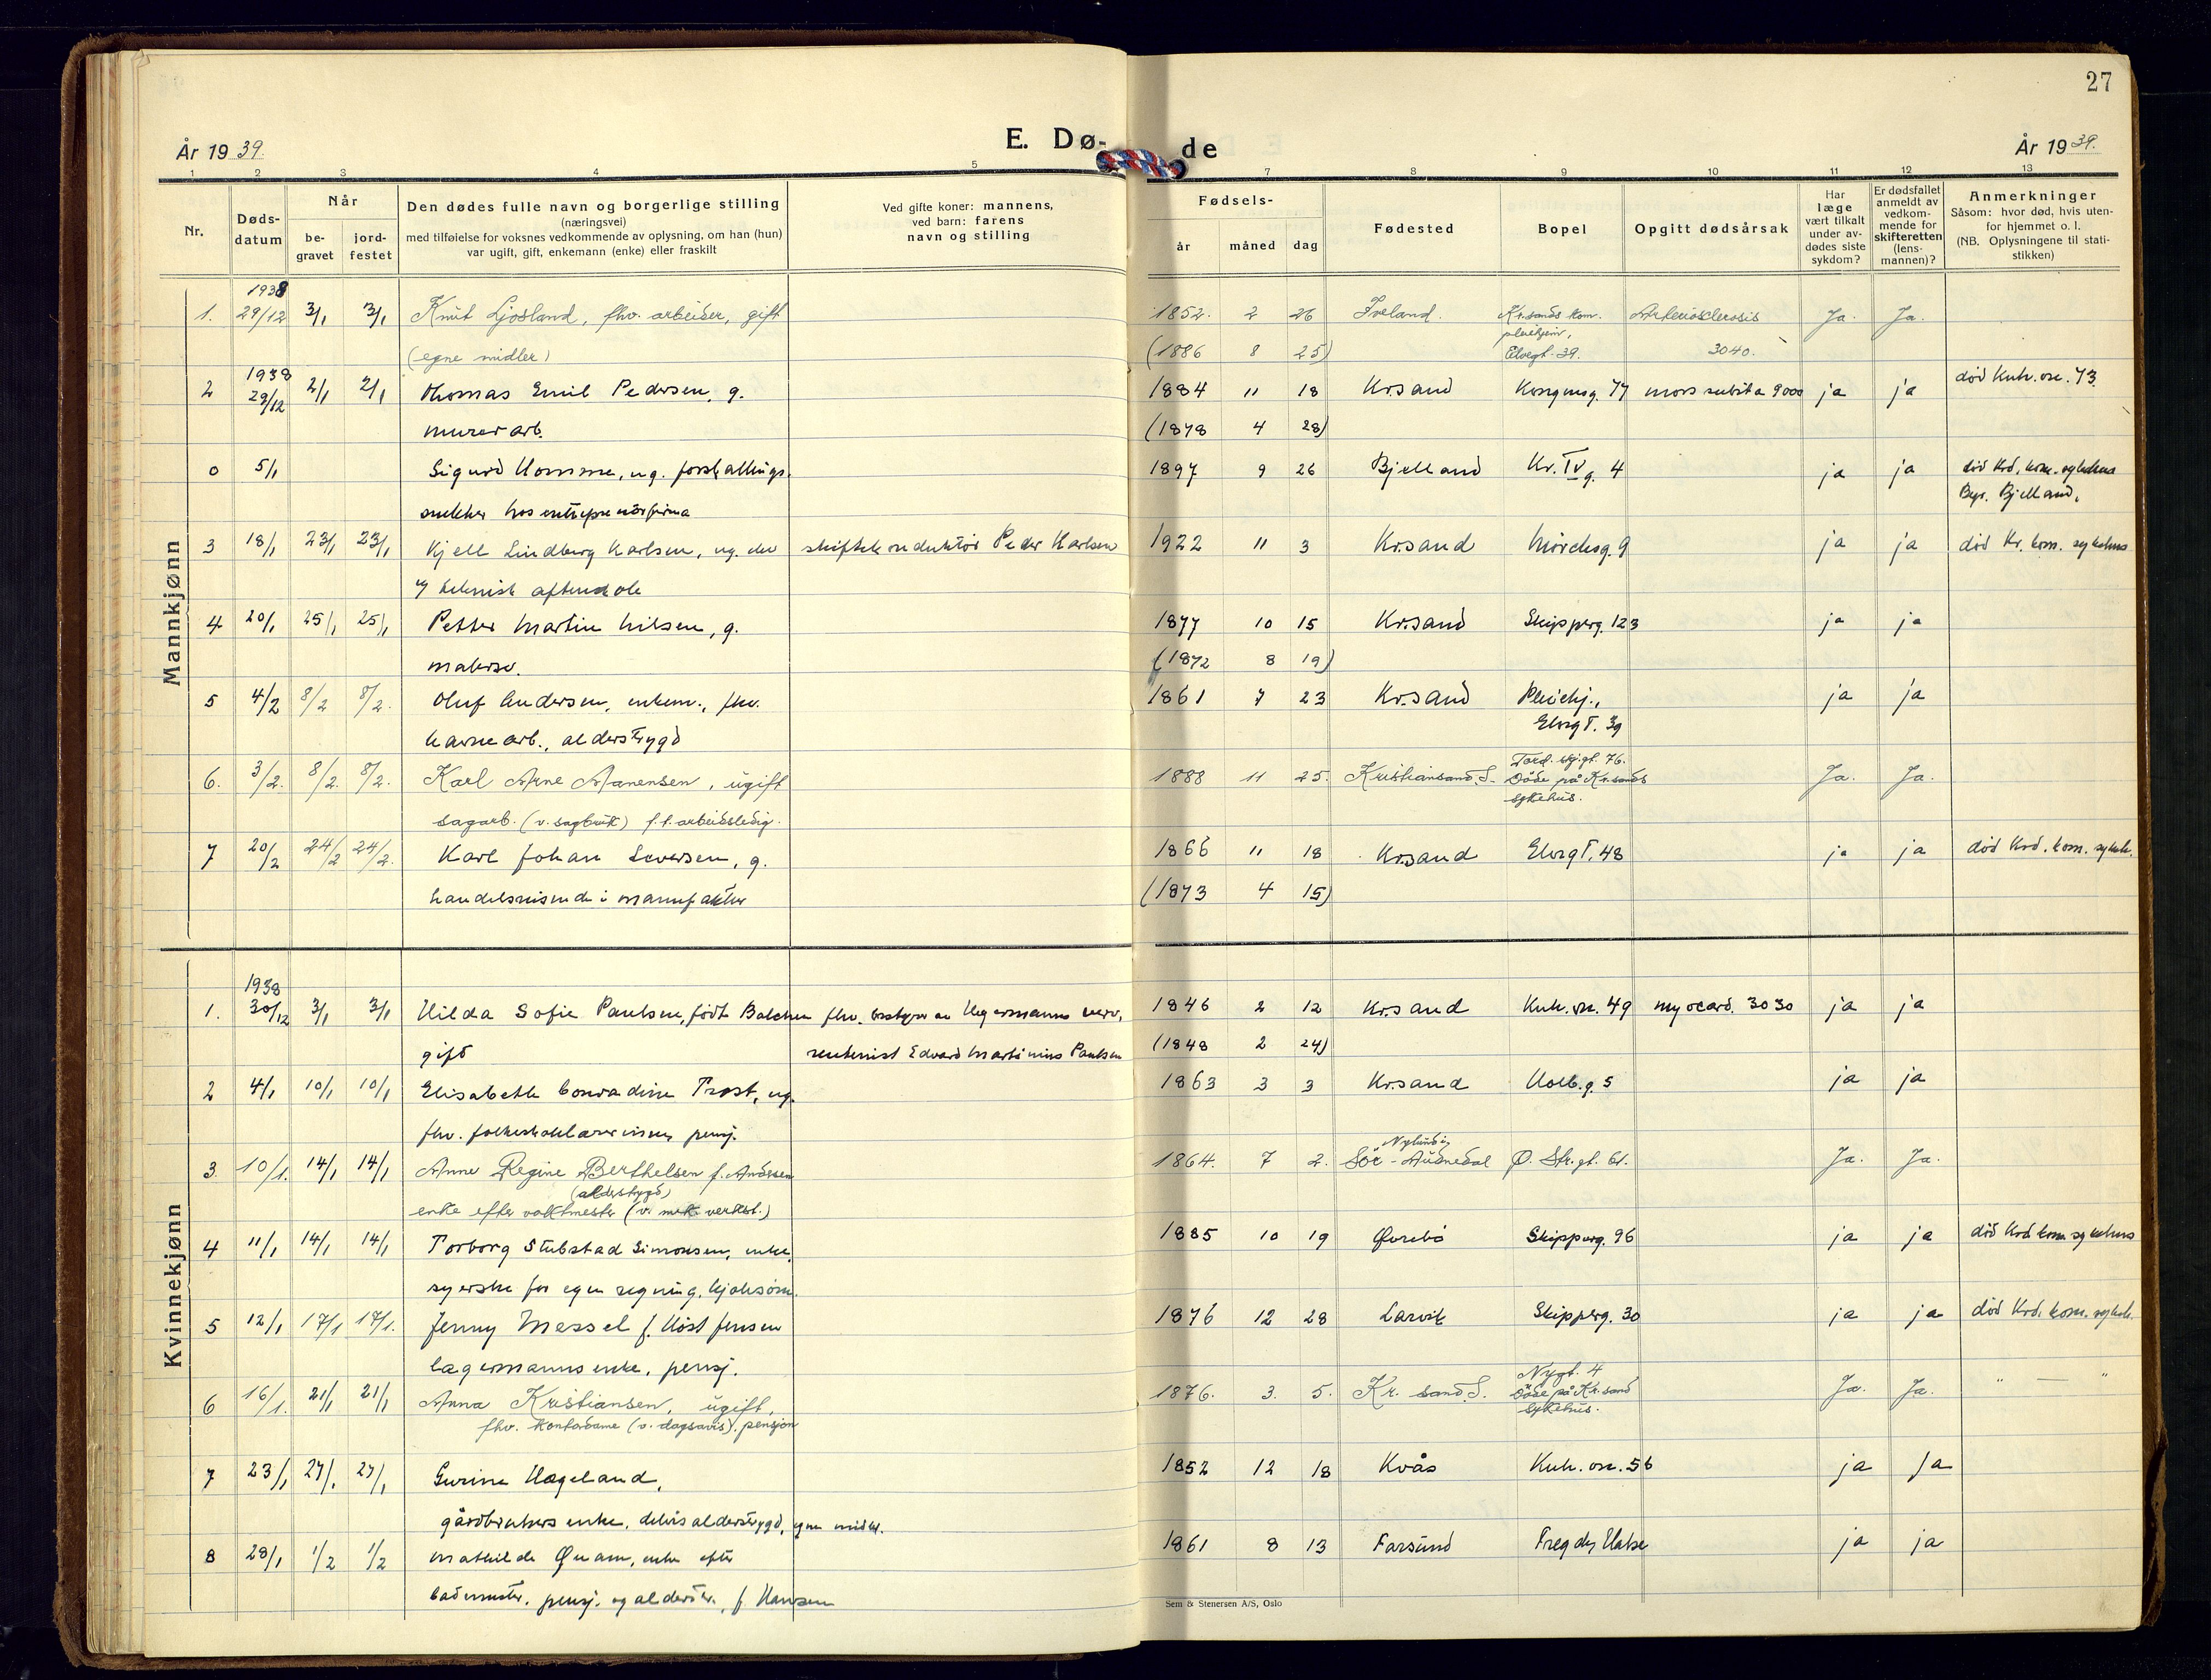 27
År 1939.
E. Dø-
de
År 1939.
1 2 3 4 5 7 8 9 10 11 12 13
Nr.
Døds-
datum
Når
be-
gravet
jord-
festet
Den dødes fulle navn og borgerlige stilling
(næringsvei)
med tilføielse for voksnes vedkommende av oplysning, om han (hun)
var ugift, gift, enkemann (enke) eller fraskilt
Ved gifte koner: mannens,
ved barn: farens
navn og stilling
Fødsels-
år måned dag
Fødested
Bopel
Opgitt dødsårsak
Har
læge
vært tilkalt
under av-
dødes siste
sykdom?
Er dødsfallet
anmeldt av
vedkom-
mende for
skifteretten
(lens-
mannen)?
Anmerkninger
Såsom: hvor død, hvis uten-
for hjemmet o. l.
(NB. Oplysningene til stati-
stikken)
Mannkjønn
1938
1. 29/12 3/1 3/1 Knut Ljosland, fhv. arbeider, gift 1852. 2 26 Iveland. Kr.sands kom. Arteriosclerosis Ja. Ja.
pleiehjem,
(egne midler) (1886 8 25) Elvegt. 39. 3040.
1938
2 29/12 2/1 2/1 Thomas Emil Pedersen, g. 1884 11 18 Kr.sand Kongensg. 77 mors subita 9000 ja ja død Kuh. 73.
murerarb. (1878 4 28)
0 5/1 Sigurd Homme, ug. forskallings- 1897 9 26 Bjelland Kr. IV g. 4 ja ja død Krd. kom. sykehus
snekker hos entreprenørfirma Begr. Bjelland.
3 18/1 23/1 23/1 Kjell Lindberg Karlsen, ug. elev Peder Karlsen 1922 11 3 Kr.sand Mörchsg. 9 ja ja död Kr. kom. sykehus
v/ teknisk aftenskole
4 20/1 25/1 25/1 Petter Martin Nilsen, g. 1877 10 15 Kr.sand Skipperg. 123 ja ja
malersv. (1872 8 19)
5 4/2 8/2 8/2. Oluf Andersen, enkem., fhv. 1861 7 23 Kr.sand Pleiehj., ja ja
havnearb., alderstrygd Elvegt. 39
6. 3/2. 8/2. 8/2. Karl Arne Aanensen, ugift 1888 11 25. Kristiansand. S. Tord. skj.gt. 76. Ja. Ja.
Döde på Kr.sands
sagarb. (v. sagbruk) f.t. arbeidsledig. sykehus.
7 20/2 24/2 24/2. Karl Johan Seversen, g. 1866 11 18 Kr.sand Elvegt. 48 ja ja död Krd. kom. sykeh.
handelsreisende i manufaktur (1873 4 15)
Kvinnekjønn
1938
1. 30/12 3/1 3/1 Hilda Sofie Paulsen, födt Balchen fhv. bestyrer av Hegermanns 1846 2 12 Kr.sand Kuh. 49 myocard. 3030 ja ja
gift rentenist Edvard Martinius Paulsen (1848 2 24)
2 4/1 10/1 10/1 Elisabeth Conradine Trost, ug. 1863 3 3 Kr.sand Holb.g. 5 ja ja
fhv. folkeskolelærerinne, pensj.
3. 10/1. 14/1 14/1 Anne Regine Berthelsen f. Andersen 1864. 7 2. Nylund i, Sör-Audnedal Ø. Str.gt. 61. Ja. Ja.
(alderstrygd)
enke efter vaktmester (v. mek. verkst.)
4 11/1 14/1 14/1 Torborg Stubstad Simonsen, enke, 1885 10 19 Øvrebö Skipperg. 96 ja ja död Krd. kom. sykehus
syerske for egen regning, kjolesöm.
5 12/1 17/1 17/1. Jenny Messel f. Höst Jensen 1876 12 28 Larvik Skipperg. 30 ja ja död Krd. kom. sykeh.
lagermanns enke, pensj.
6 16/1. 21/1 21/1 Anna Kristiansen, ugift, 1876. 3. 5. Kr. sand. S. Nygt. 4 Ja. Ja. " — "
Döde på Kr.sand
fhv. kontordame (v. dagsavis). pensjon sykehus.
7 23/1 27/1 27/1 Gurine Hægeland, 1852 12 18 Kvås Kuh. 56 ja Ja
gårdbrukers enke, delvis alderstrygd, egne midler.
8 28/1 1/2 1/2 Mathilde Qvam, enke efter 1861 8 13 Farsund Fregdes Have ja ja
bademester, pensj. og alderstr., f. Hansen
Sem & Stenersen A/S, Oslo